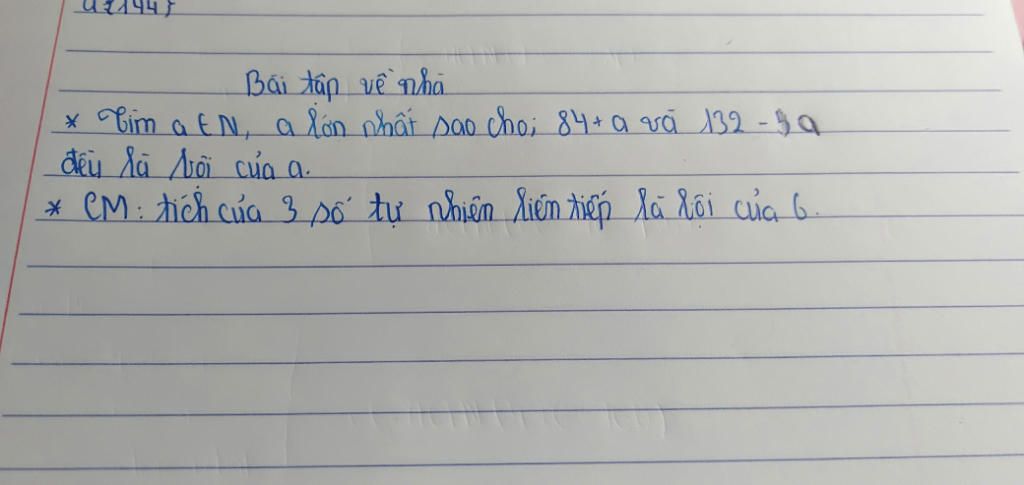 a ∈ {144}
Bài tập về nhà
* Tìm a ∈ N, a lớn nhất sao cho; 84 + a và 132 - 9a
đều là bội của a.
* CM: tích của 3 số tự nhiên liên tiếp là bội của 6.